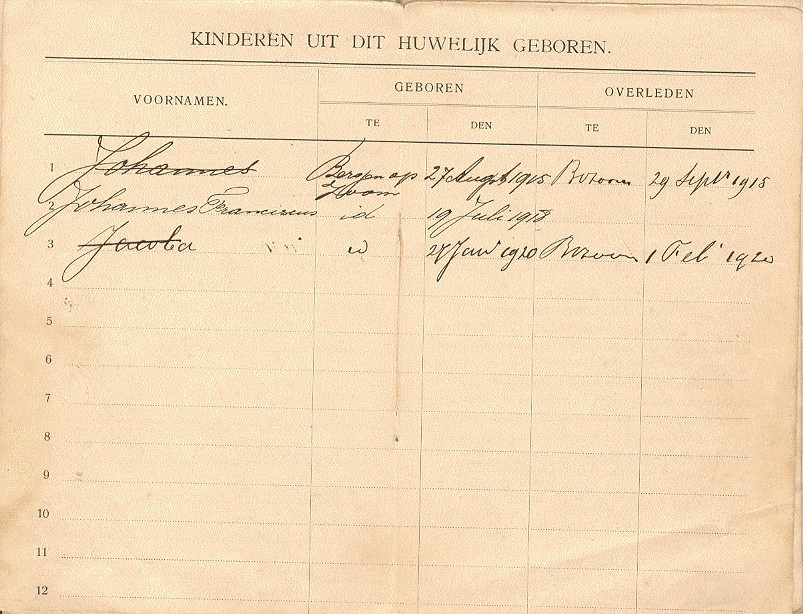 KINDEREN UIT DIT HUWELIJK GEBOREN.
VOORNAMEN. GEBOREN OVERLEDEN
TE DEN TE DEN
1 Johannes Bergen op Zoom 27 Augst 1915 Bozoom 29 Sept 1915
2 Johannes Franciscus id 19 Juli 1918
3 Jacoba id 27 Jan 1920 Bozoom 1 Feb 1920
4
5
6
7
8
9
10
11
12